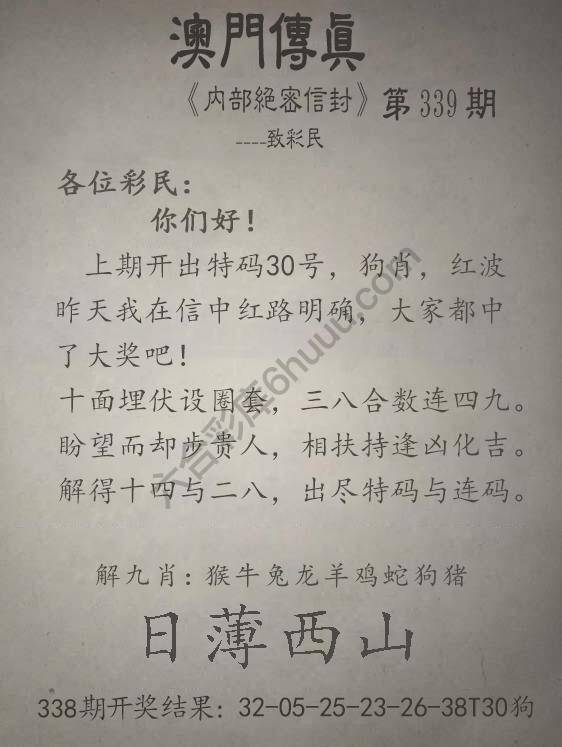 澳門傳眞
《内部絕密信封》第339期
----致彩民
各位彩民：
你们好！
上期开出特码30号，狗肖，红波
昨天我在信中红路明确，大家都中
了大奖吧！
十面埋伏设圈套，三八合数连四九。
盼望而却步贵人，相扶持逢凶化吉。
解得十四与二八，出尽特码与连码。
解九肖：猴牛兔龙羊鸡蛇狗猪
日薄西山
338期开奖结果：32-05-25-23-26-38T30狗
六合彩库6huuu.com